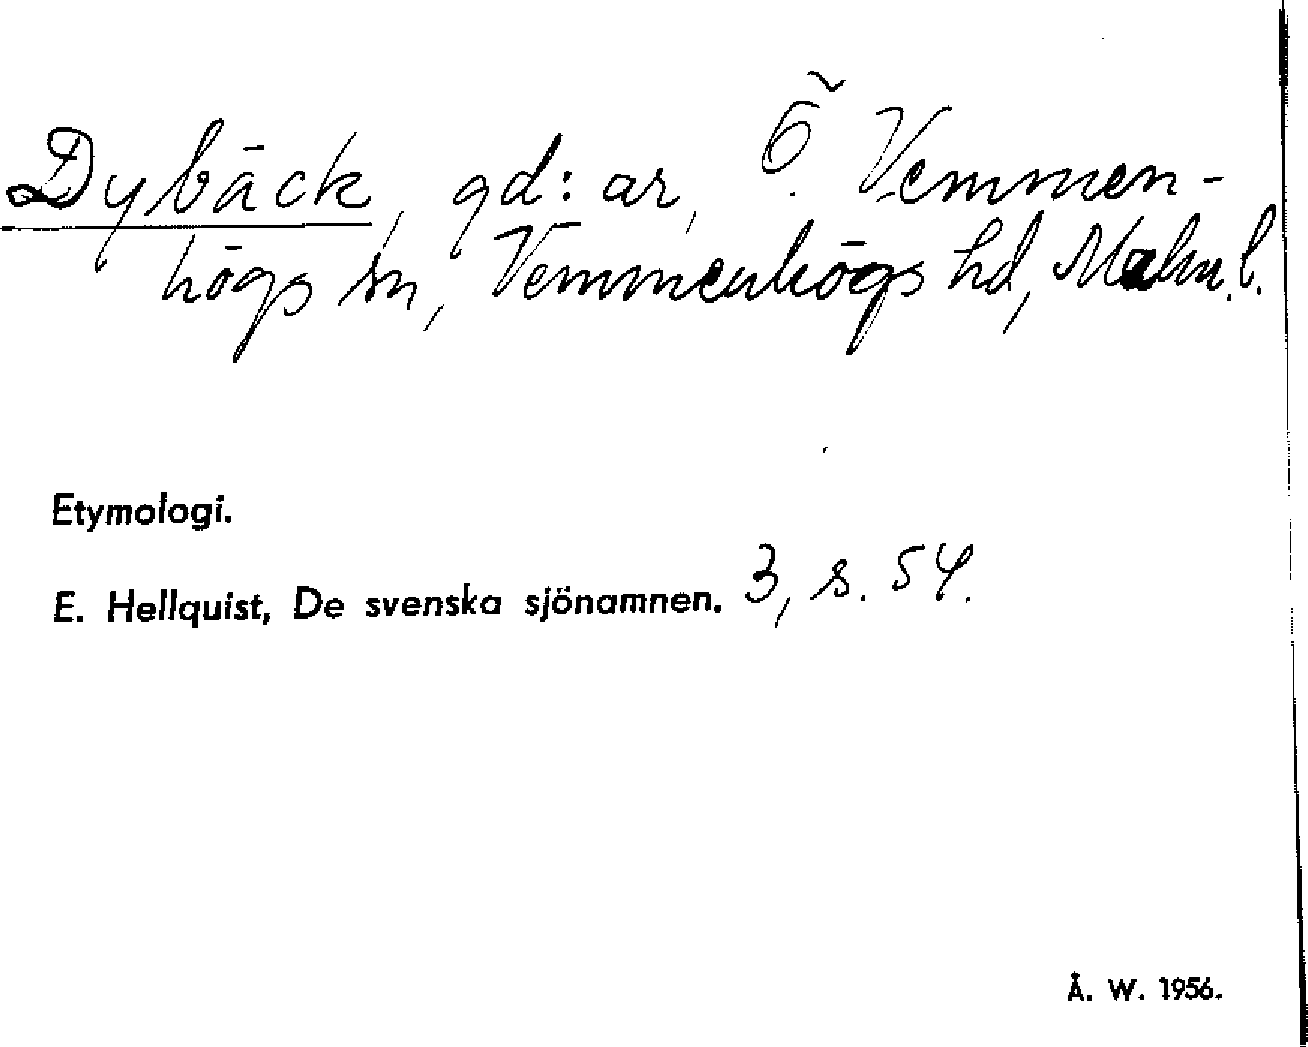 Dybäck, gd:ar, Ö. Vemmen-
högs sn, Vemmenhögs hd, Malm. l.
Etymologi.
E. Hellquist, De svenska sjönamnen. 3, s. 54.
Å. W. 1956.